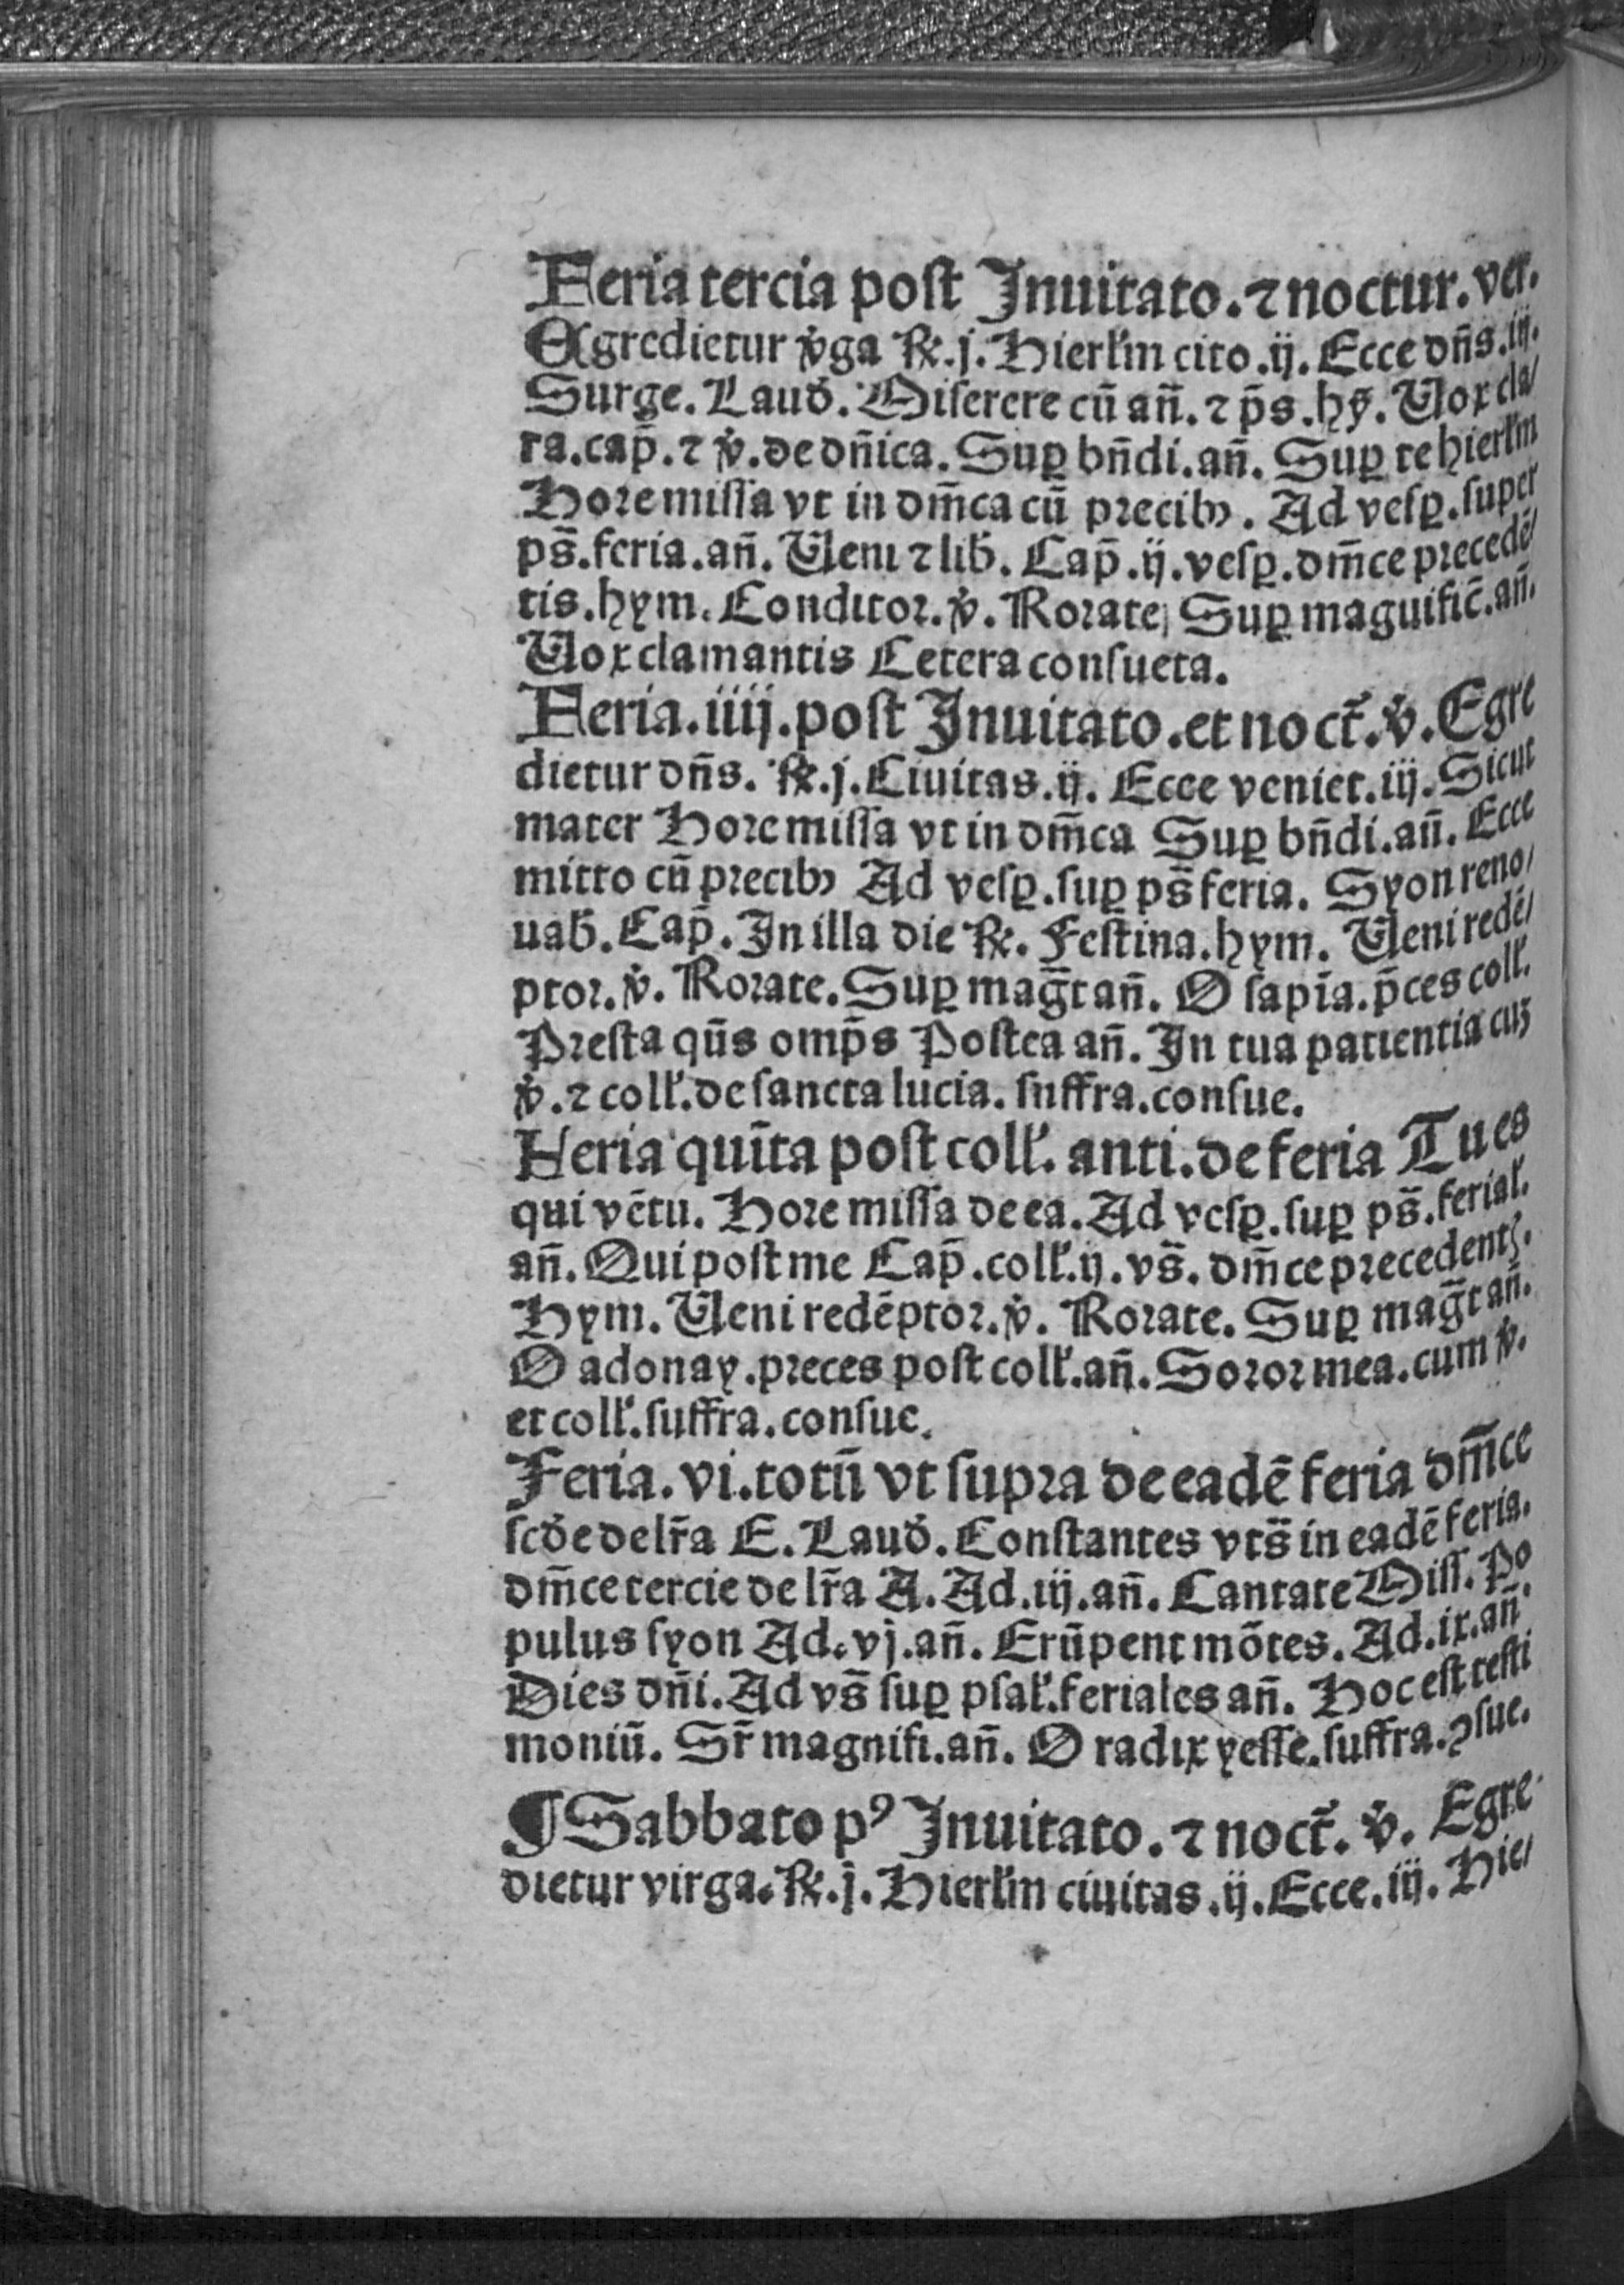 Feria tercia post Inuitato. ⁊ noctur. ver.
Egredietur v̾ga ℟. j. Hierłm cito .ij. Ecce dn̄s .iij.
Surge. Laud̾. Miserere cū an̄. ⁊ p̄s. hȳ. Uox cla/
ra. cap̄. ⁊ v̾. de dn̄ica. Suꝑ bn̄di. an̄. Suꝑ te hierłm
Hore missa vt in dm̄ca cū precibꝫ. Ad vesꝑ. super
ps̄. feria. an̄. Ueni ⁊ lib̾. Cap̄ .ij. vesꝑ. dm̄ce precedē/
tis. hym. Conditor. v̾. Rorate, Suꝑ maguific̄. an̄.
Uox clamantis Cetera consueta.
Feria. iiij. post Inuitato. et noct̄. v̾. Egre
dietur dn̄s. ℟. j. Ciuitas .ij. Ecce veniet. iij. Sicut
mater Hore missa vt in dm̄ca Suꝑ bn̄di. an̄. Ecce
mitto cū precibꝫ Ad vesꝑ. suꝑ ps̄ feria. Syon reno/
uab̾. Cap̄. In illa die ℟. Festina. hym. Ueni redē/
ptor. v̾. Rorate. Suꝑ mag̅t an̄. O sapīa. p̄ces coll̾.
Presta qn̄s omp̄s Postea an̄. In tua patientia cuꝫ
v̾. ⁊ coll̾. de sancta lucia. suffra. consue.
Feria quīta post coll̾. anti. de feria Tu es
qui vētu. Hore missa de ea. Ad vesꝑ. suꝑ ps̄. ferial̾.
an̄. Qui post me Cap̄. coll̾. ij. vs̄. dm̄ce precedentꝭ.
Hym. Ueni redēptor. v̾. Rorate. Suꝑ mag̅t an̄.
O adonay. preces post coll̾. an̄. Soror mea. cum v̾.
et coll̾. suffra. consue.
Feria. vi. totū vt supra de eadē feria dm̄ce
scd̾e de lr̄a E. Laud̾. Constantes vts̄ in eadē feria.
dm̄ce tercie de lr̄a A. Ad. iij. an̄. Cantate Miss̾. Po
pulus syon Ad. vj. an̄. Erūpent mōtes. Ad. ix. an̄.
Dies dn̄i. Ad vs̄ suꝑ psal̾. feriales an̄. Hoc est testi
moniū. Sr̄ magnifi. an̄. O radix yesse. suffra. ꝯsue.
¶ Sabbato pꝰ Inuitato. ⁊ noct̄. v̾. Egre
dietur virga. ℟. j. Hierłm ciuitas .ij. Ecce. iij. Hie/